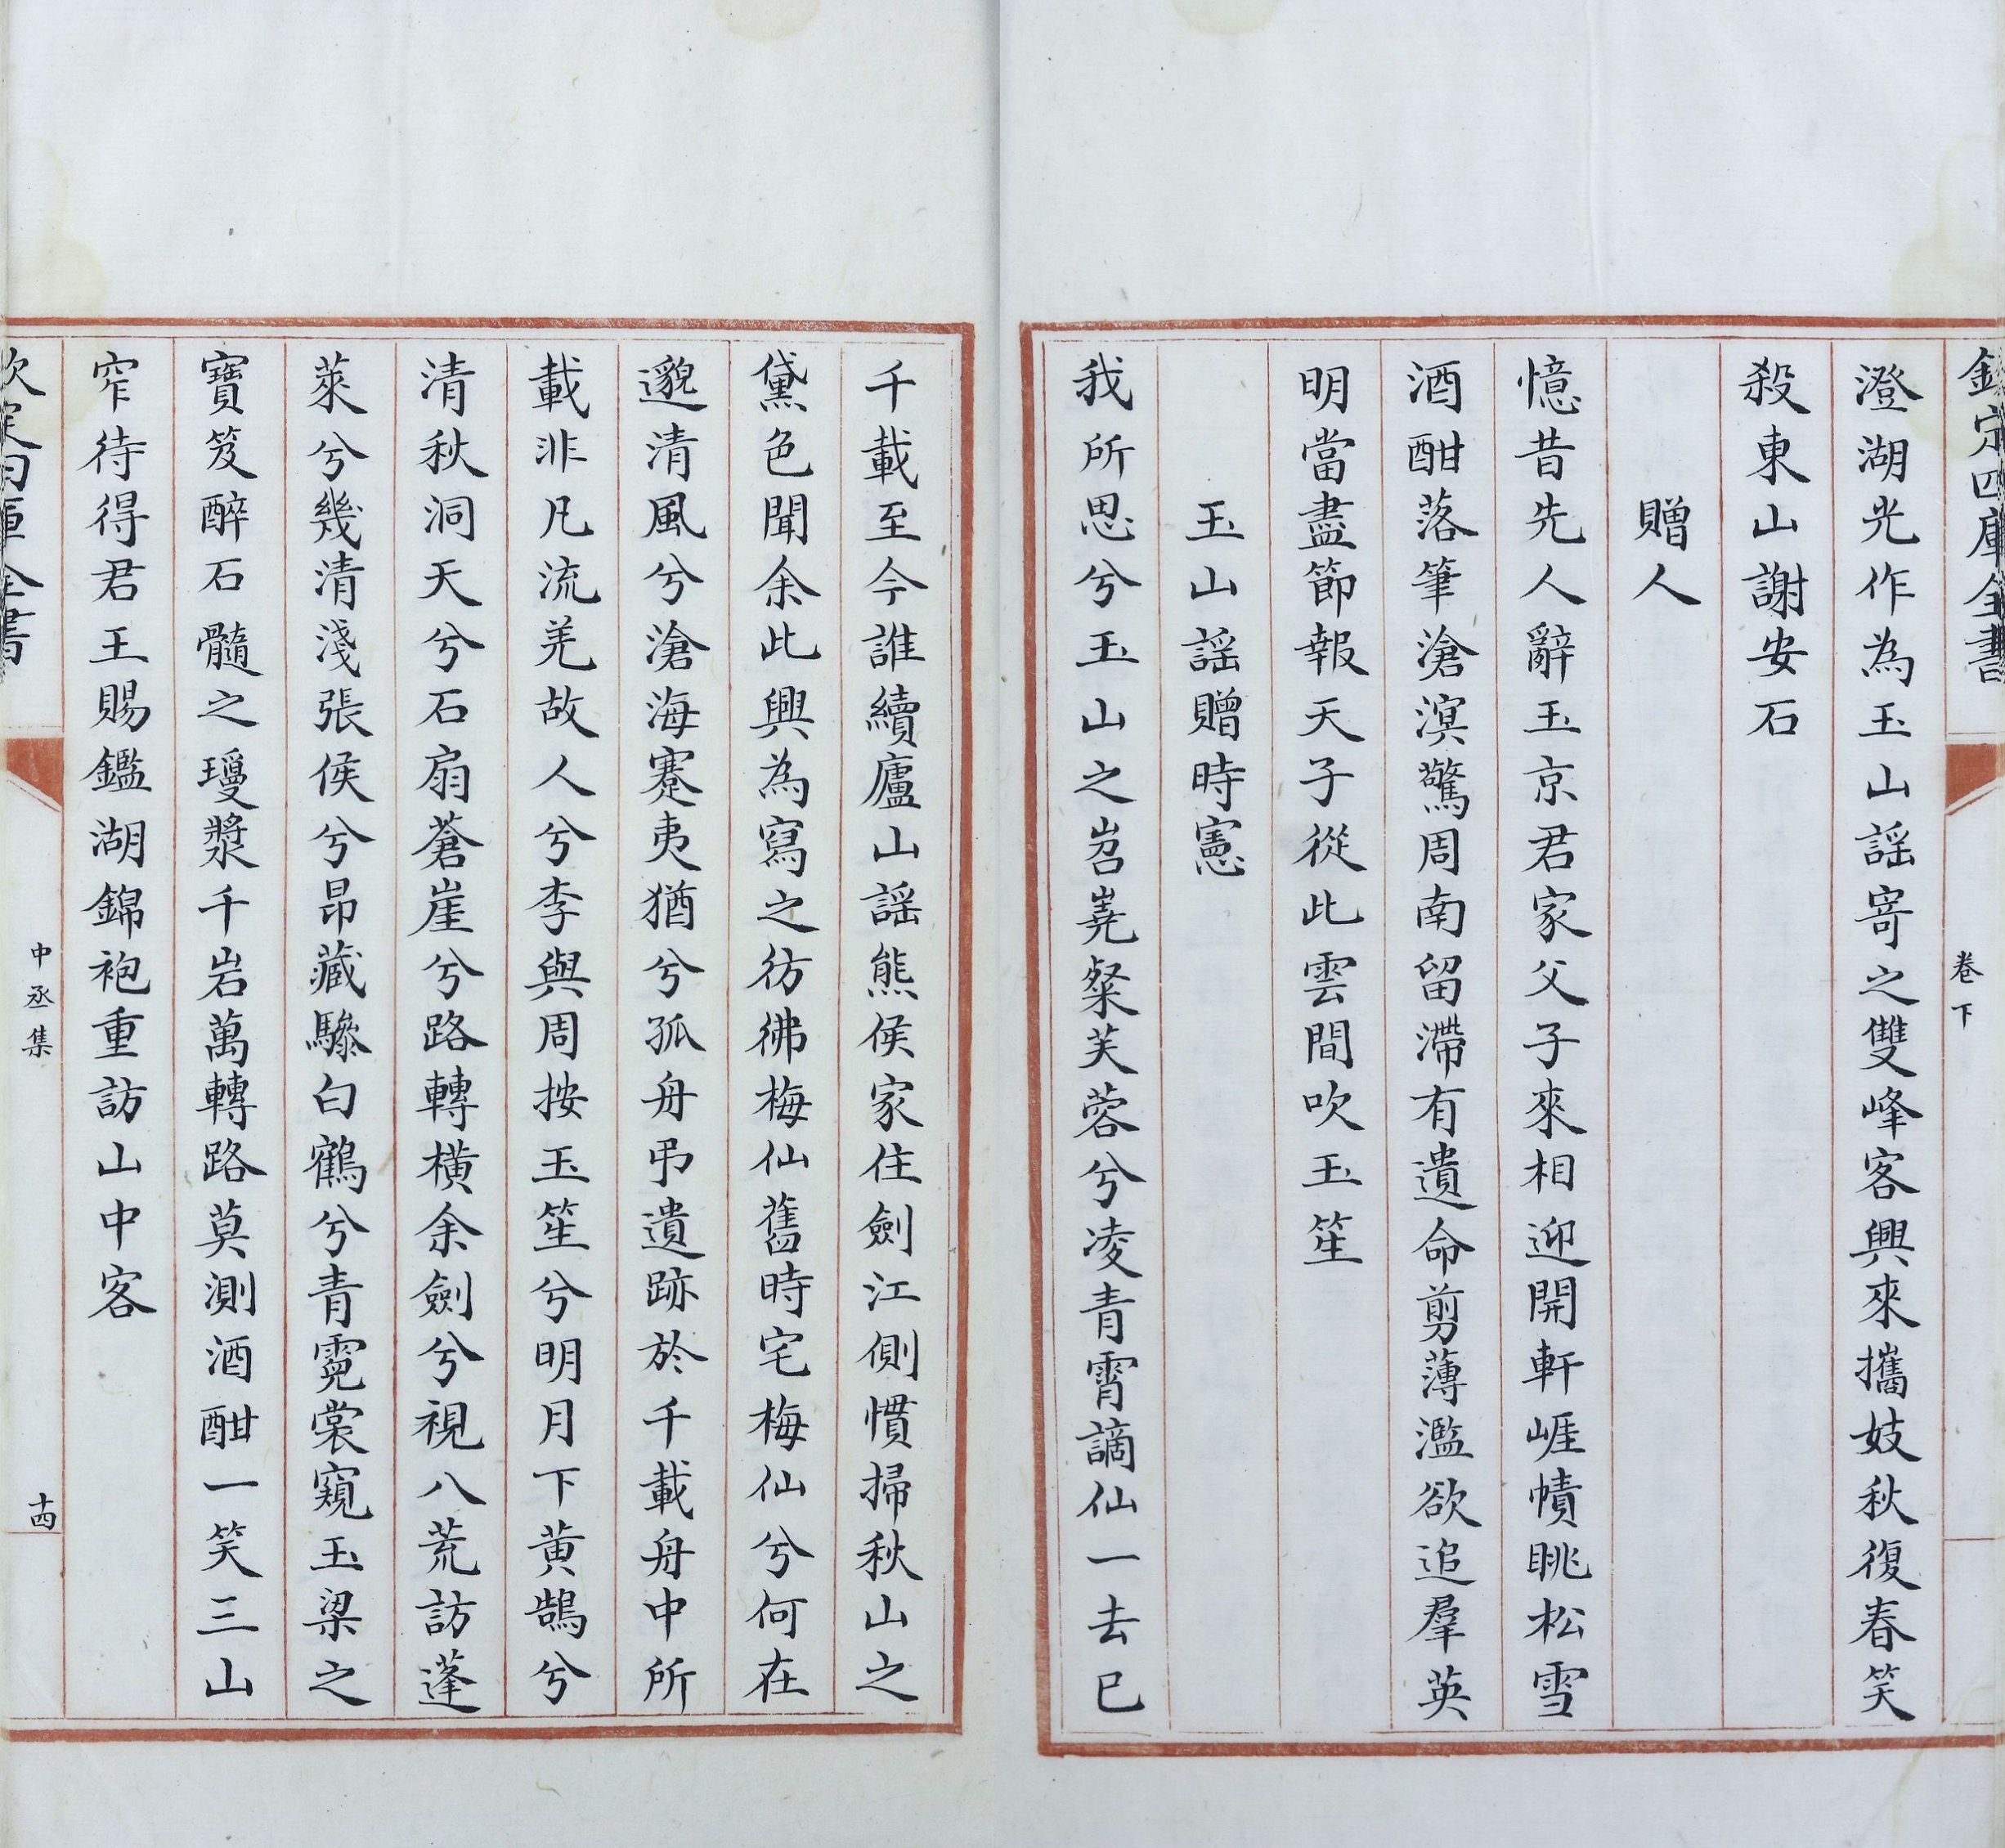 欽定四庫全書
卷下
澄湖光作為玉山謡寄之雙峰客興來攜妓秋復春笑
殺東山謝安石
贈人
憶昔先人辭玉京君家父子來相迎開軒崕幘眺松雪
酒酣落筆滄溟驚周南留滯有遺命剪薄濫欲追羣英
明當盡節報天子從此雲間吹玉笙
玉山謡贈時憲
我所思兮玉山之岧嶤粲芙蓉兮凌青霄謫仙一去已
千載至今誰續廬山謡熊侯家住劍江側慣掃秋山之
黛色聞余此興為寫之彷彿梅仙舊時宅梅仙兮何在
邈清風兮滄海蹇夷猶兮孤舟弔遺跡於千載舟中所
載非凡流羌故人兮李與周按玉笙兮明月下黄鵠兮
清秋洞天兮石扇蒼崖兮路轉橫余劍兮視八荒訪蓬
萊兮幾清淺張侯兮昂藏驂白鶴兮青霓裳窺玉梁之
寶笈醉石髓之瓊漿千岩萬轉路莫測酒酣一笑三山
窄待得君王賜鑑湖錦袍重訪山中客
欽定四庫全書
中丞集
十四